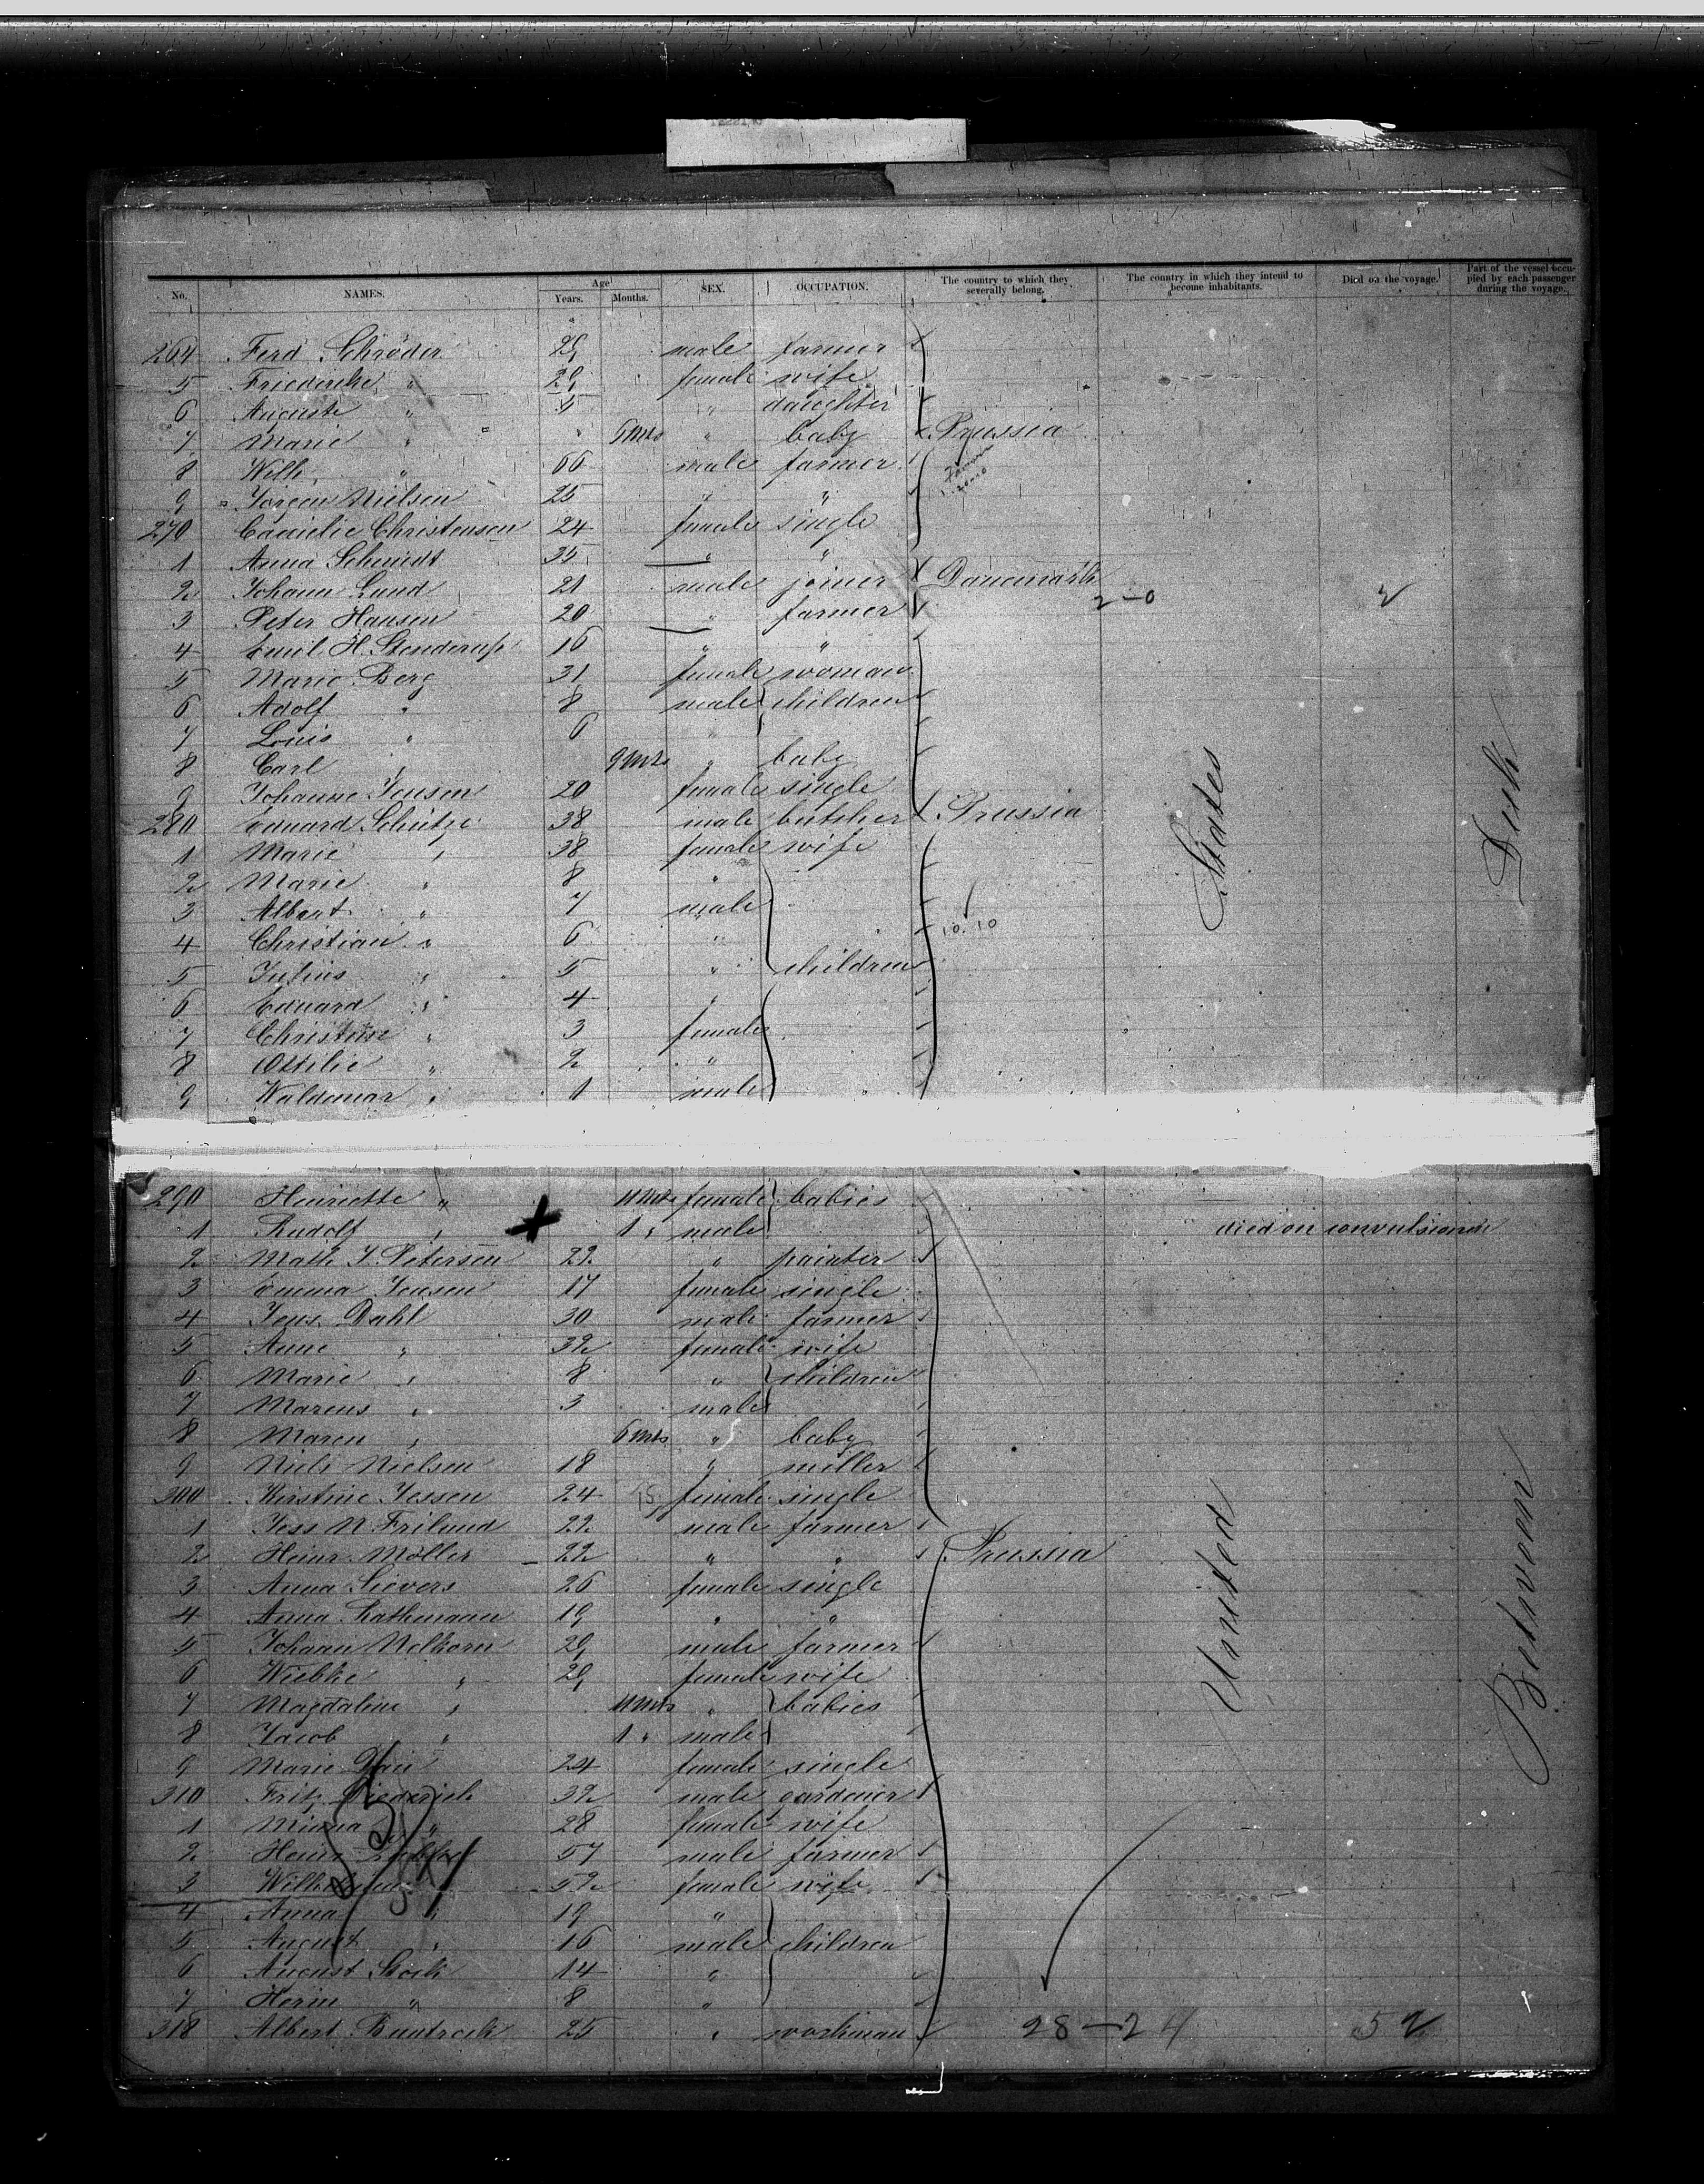 No. NAMES. Age Years. Months. SEX. OCCUPATION. The country to which they severally belong. The country in which they intend to become inhabitants. Died on the voyage. Part of the vessel occupied by each passenger during the voyage.
264 Ferd Schröder 29 male farmer
5 Friederike " 29 female wife
6 Auguste " 5 " daughter
7 Marie " " 6 Mts " baby Prussia
8 Wilh. " 66 male farmer
9 Jörgen Nielsen 25 " "
270 Caecilie Christensen 24 female single
1 Anna Schmidt 35 " "
2 Johann Lund 21 male joiner Danemark 2-0 2
3 Peter Hansen 20 " farmer
4 Emil H. Stenderup 16 " "
5 Marie Berg 31 female woman
6 Adolf " 8 male children
7 Louis " 6 "
8 Carl " 9 Mts " baby
9 Johanne Jensen 20 female single
280 Eduard Schütze 38 male butcher Prussia
1 Marie " 38 female wife
2 Marie " 8 "
3 Albert " 7 male
4 Christian " 6 " 10.10
5 Julius " 5 " children
6 Eduard " 4 "
7 Christine " 3 female
8 Ottilie " 2 "
9 Waldemar " 1 male
290 Henriette " 11 Mts female babies
1 Rudolf " 1 " male died on convulsionen
2 Math J. Petersen 22 " painter
3 Emma Jensen 17 female single
4 Jens Dahl 30 male farmer
5 Anne " 32 female wife
6 Marie " 8 " children
7 Marcus " 3 male
8 Maren " 6 Mts " baby
9 Niels Nielsen 18 " miller
300 Kirstine Jessen 24 female single
1 Jess N. Frilund 22 male farmer
2 Heinr. Möller 22 " " Prussia
3 Anna Sievers 26 female single
4 Anna Rathmann 19 " "
5 Johann Nelkorn 29 male farmer
6 Wiebke " 29 female wife
7 Magdalene " 11 Mts " babies
8 Jacob " 1 " male
9 Marie 24 female single
310 Fritz Diederich 32 male gardener
1 Minna " 28 female wife
2 Heinr. 57 male farmer
3 52 female wife
4 Anna " 19 "
5 August " 16 male children
6 August Stock 14 "
7 Herm " 8 "
318 Albert Buntrock 25 " workman 28-24 52
United States
Between Deck